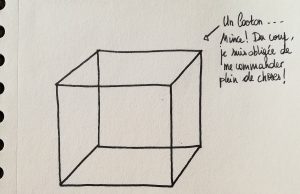 Un Carton ...
Mince! Du coup,
je suis obligée de
me commander
plein de choses!